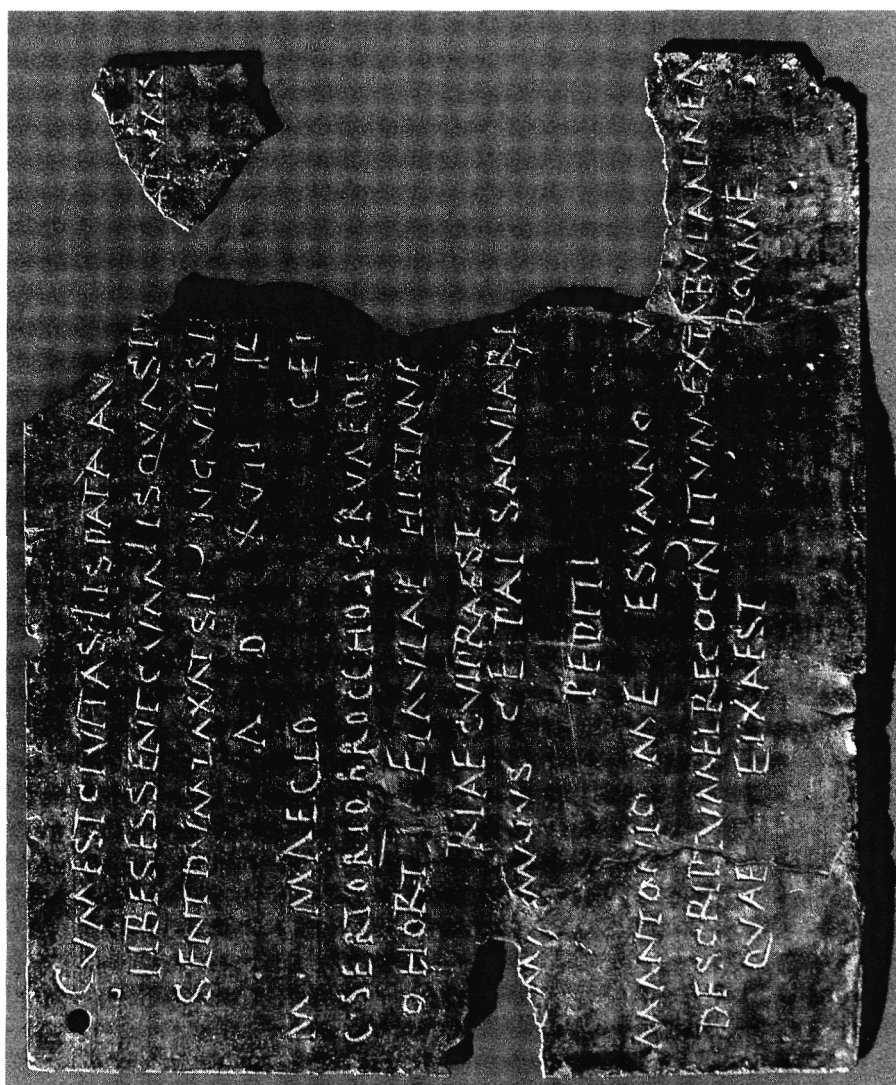 CVMESTCIVITASIISDATAAV
IIBESESSENTCVMIISQVASP
SENTDVMTAXATSINGVLISI
A D XVII K
M. MAECIO CEL
CSERTORIOBROCCHOSERVAEO
COHORT HISPANO
RIAECVIPRAEST
C F PAL SALVIAN
PEDITI
MANTONIO M F ESVMNO V
DESCRIPTVMETRECOGNITVMEXTABVLAAENEA
QVAE FIXAEST ROMAE